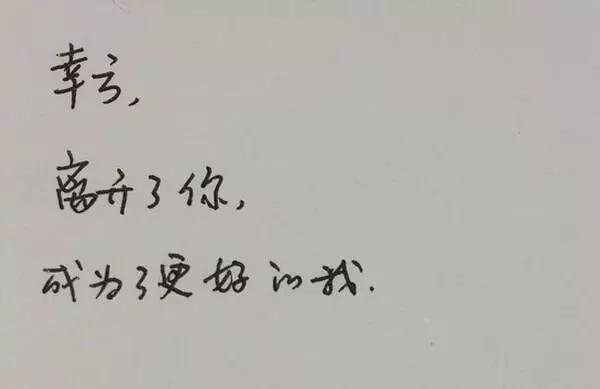 幸亏,
离开了你,
成为了更好的我.